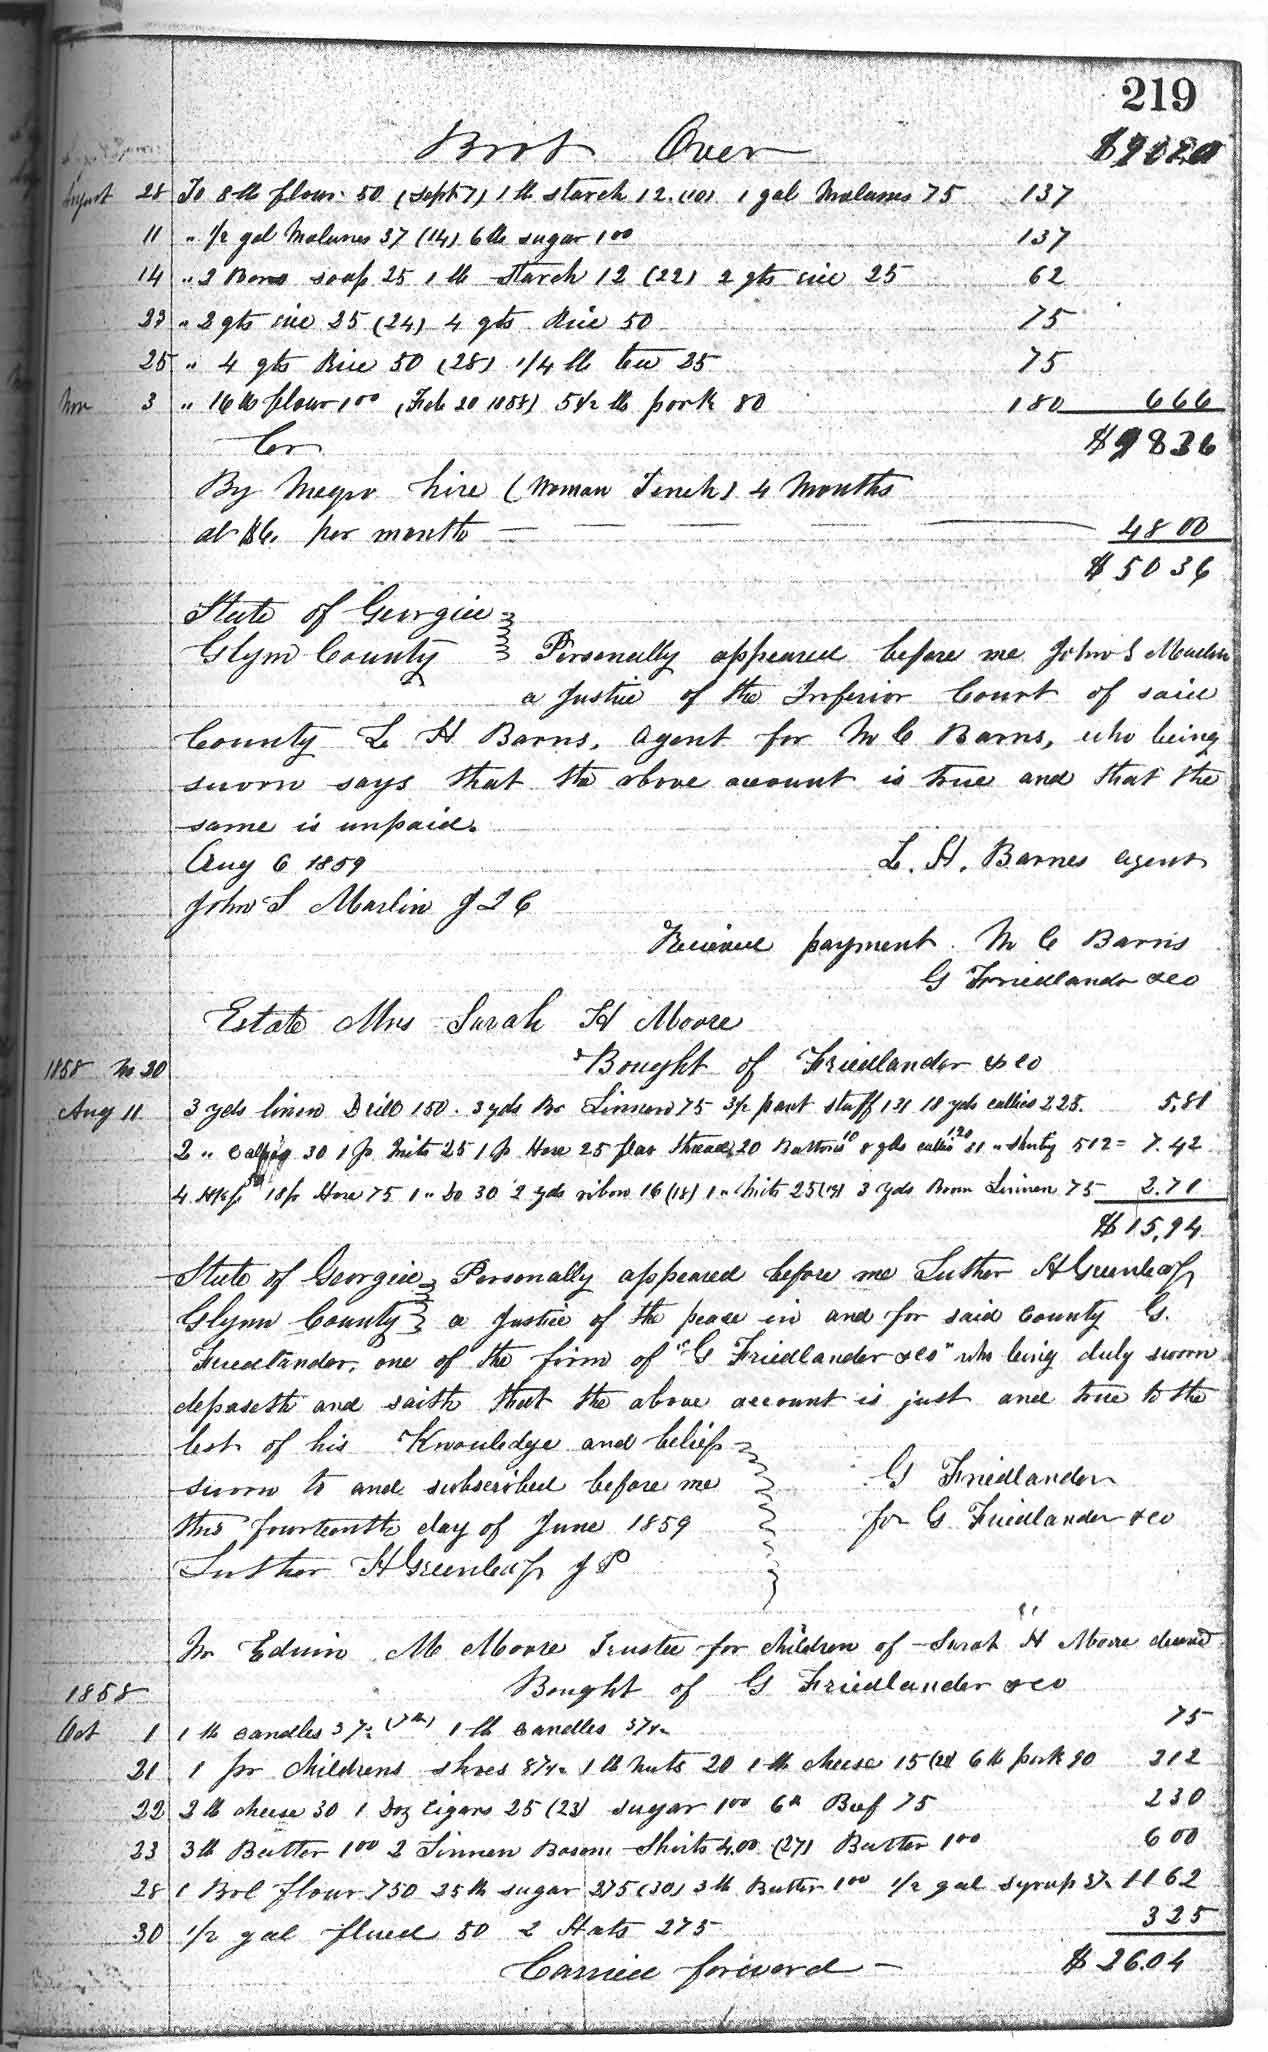 219
Brot Over
August 28 To 8 lb flour 50 (Sept 7) 1 lb starch 12 (10) 1 gal Molasses 75 137
11 " 1/2 gal Molasses 37 (14) 6 lb sugar 1 00 137
14 " 2 Bars soap 25 1 lb starch 12 (22) 2 qts rice 25 62
23 " 2 qts rice 25 (24) 4 qts Rice 50 75
25 " 4 qts Rice 50 (28) 1/4 lb tea 25 75
Nov 3 " 16 lb flour 1 00 (Feb 20 1858) 5 1/2 lb pork 80 180 666
Cr $9836
By Negro hire (Woman Tench) 4 Months
at per month 4800
$5036
State of Georgia
Glynn County Personally appeared before me John S
a Justice of the Inferior Court of said
County L H Barns, agent for M C Barns, who being
sworn says that the above account is true and that the
same is unpaid.
Aug 6 1859 L. H. Barnes agent
John S Marlin J I C
Recieved payment M C Barns
G Friedlander &co
Estate Mrs Sarah H Moore
1858 No 20 Bought of Friedlander & co
Aug 11 3 yds linen Drill 150. 3 yds Br Linnen 75 3 1/2 pant stuff 131 18 yds callico 225. 5,81
2 " 30 1 p Mits 25 1 p Hose 25 flax thread 20 Buttons 10 8 yds callico 120 " Shirting 512 = 7.42
4 Hkfs 1 p Hose 75 1 " Do 30 2 yds ribon 16 (18) 1 " Mits 25 (19) 3 yds Brown Linnen 75 2.71
$15,94
State of Georgia Personally appeared before me Luther H Greenleaf
Glynn County a Justice of the peace in and for said county G.
Friedlander, one of the firm of "G Friedlander &co" who being duly sworn
deposeth and saith that the above account is just and true to the
best of his Knowledge and belief
sworn to and subscribed before me G Friedlander
this fourteenth day of June 1859 for G Friedlander &co
Luther H Greenleaf J P
Mr Edwin M Moore Trustee for children of Sarah H Moore deceased
1858 Bought of G Friedlander &co
Oct 1 1 lb candles 37 1/2 (7th) 1 lb candles 37 1/2 75
21 1 pr childrens shoes 87 1/2 1 lb nuts 20 1 lb cheese 15 (21) 6 lb pork 90 212
22 2 lb cheese 30 1 Doz cigars 25 (23) sugar 1 00 6 lb Beef 75 230
23 3 lb Butter 1 00 2 Linnen Bosom Shirts 4.00 (27) Butter 1 00 600
28 1 Brl flour 750 25 lb sugar 275 (30) 3 lb Butter 1 00 1/2 gal syrup 37 1162
30 1/2 gal flued 50 2 Hats 275 325
Carried forward $26.04